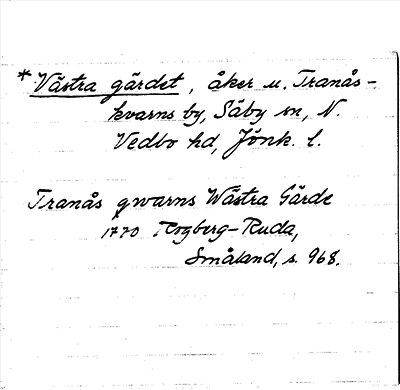 * Västra gärdet, åker u. Tranås-
kvarns by, Säby sn, N.
Vedbo hd, Jönk. l.
Tranås qwarns Wästra Gärde
1770 Rogberg-Ruda,
Småland, s. 968.